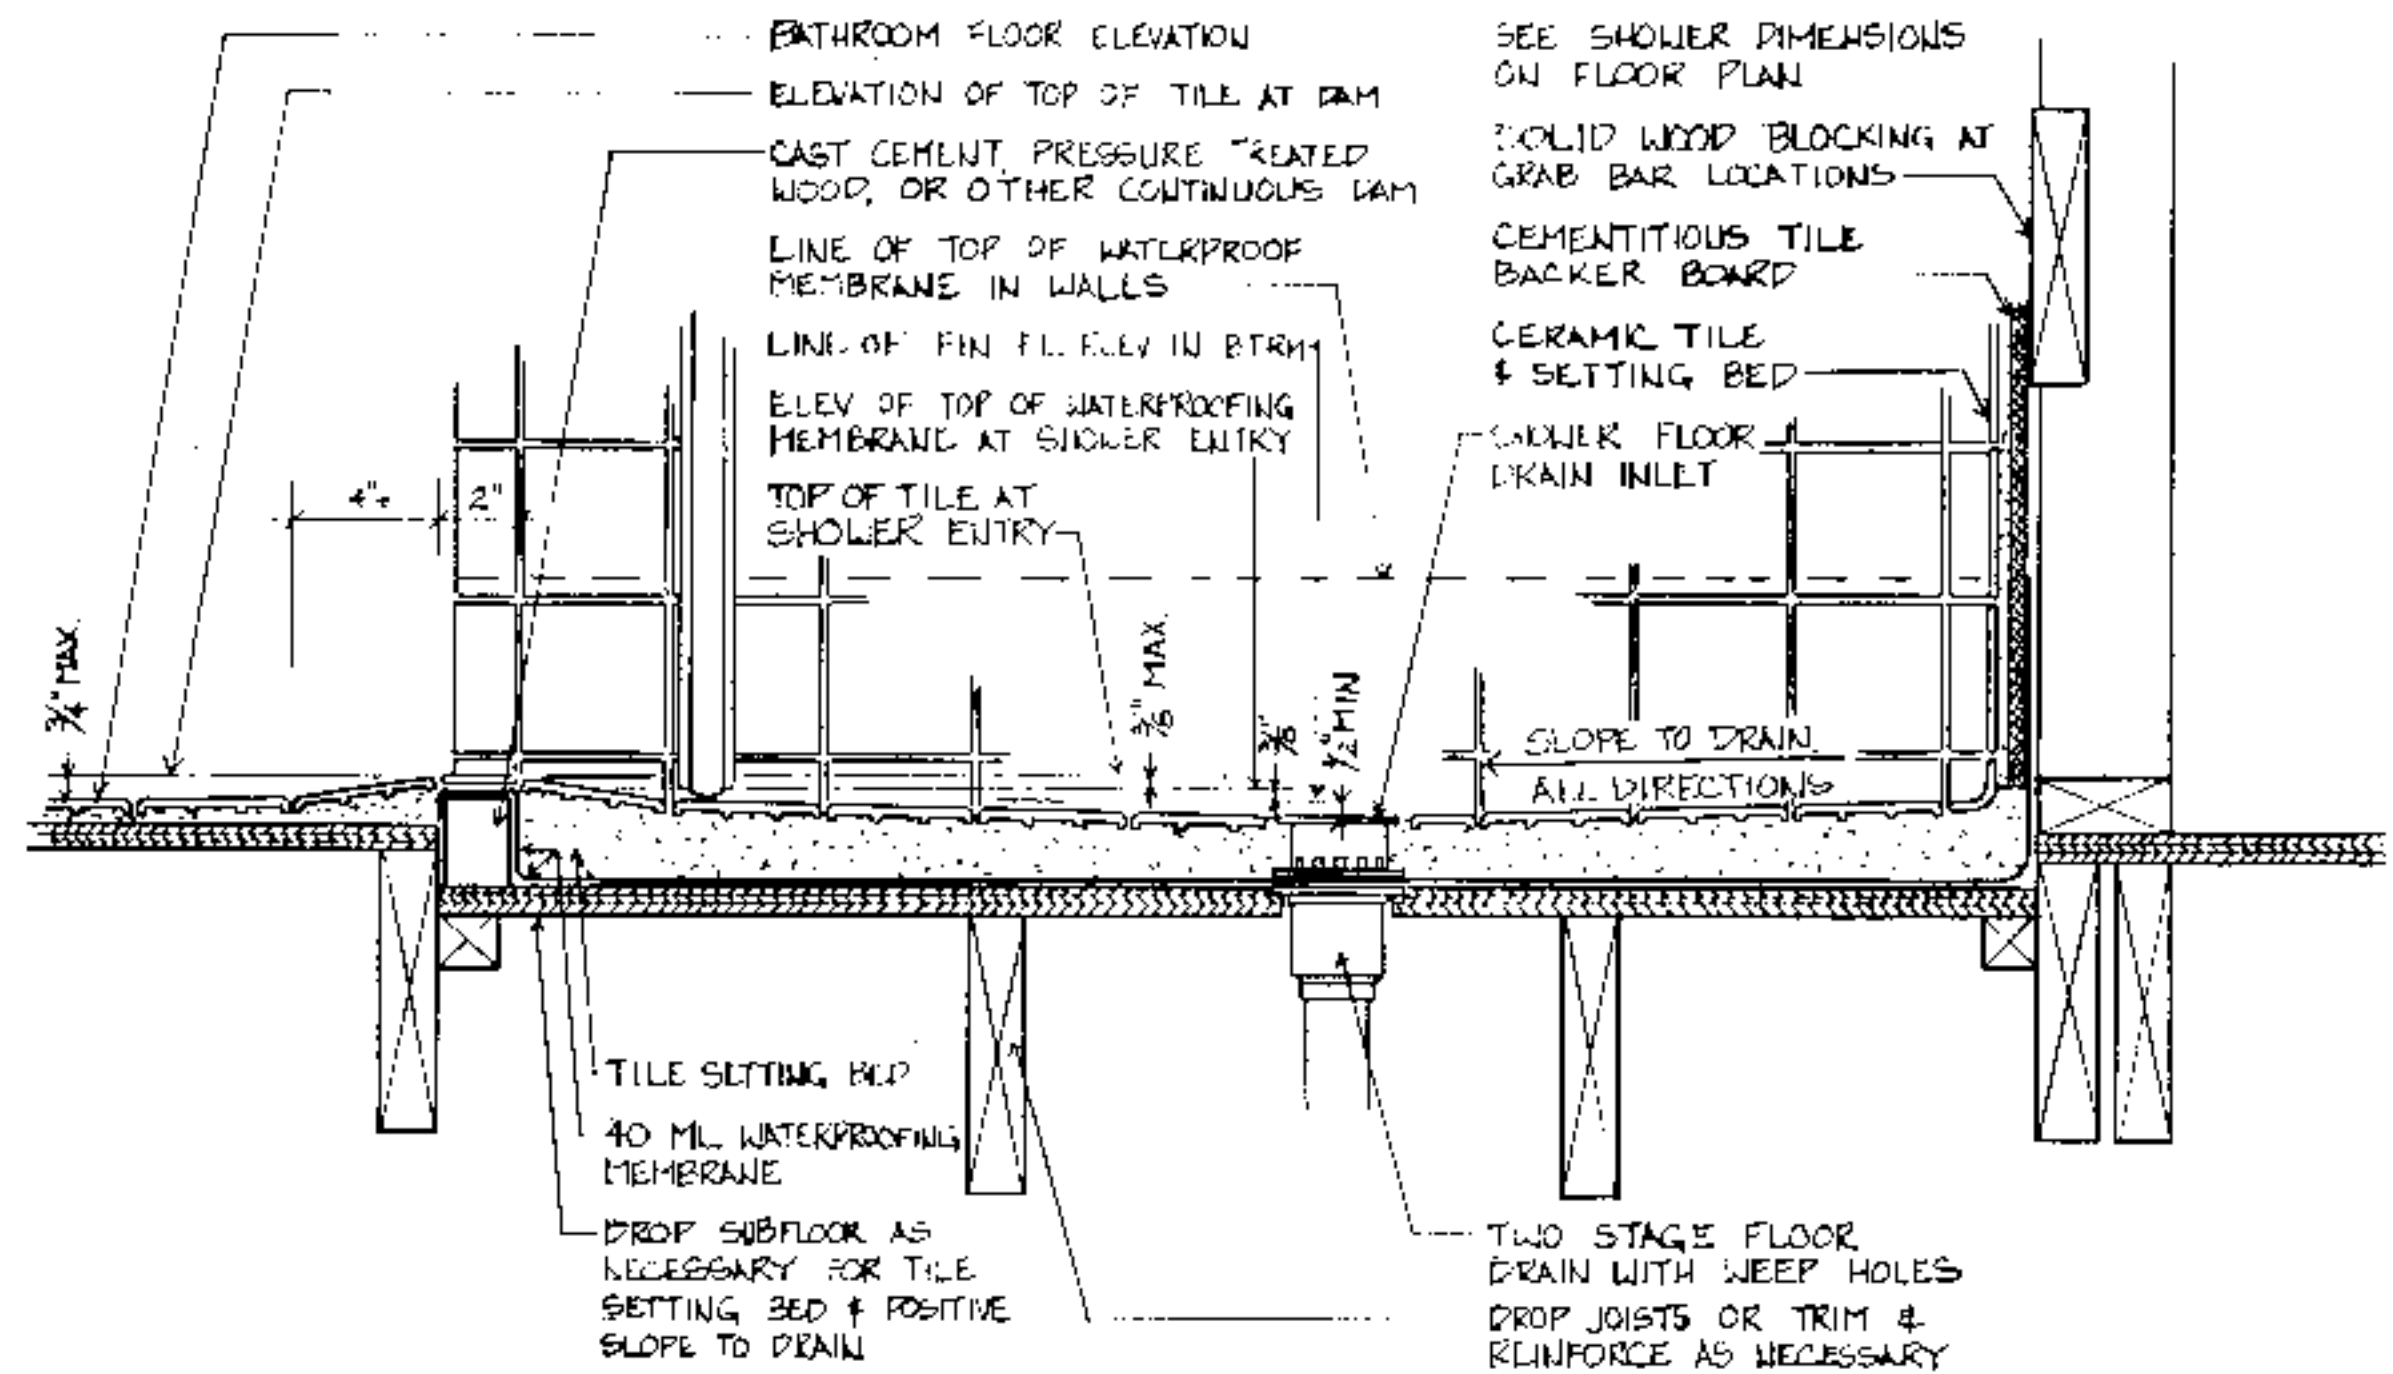 BATHROOM FLOOR ELEVATION
ELEVATION OF TOP OF TILE AT DAM
CAST CEMENT, PRESSURE TREATED
WOOD, OR OTHER CONTINUOUS DAM
LINE OF TOP OF WATERPROOF
MEMBRANE IN WALLS
LINE OF FIN FL ELEV IN BTRM
ELEV OF TOP OF WATERPROOFING
MEMBRANE AT SHOWER ENTRY
TOP OF TILE AT
SHOWER ENTRY
SEE SHOWER DIMENSIONS
ON FLOOR PLAN
SOLID WOOD BLOCKING AT
GRAB BAR LOCATIONS
CEMENTITIOUS TILE
BACKER BOARD
CERAMIC TILE
& SETTING BED
SHOWER FLOOR
DRAIN INLET
2"
3/4" MAX.
MAX.
1/2" MIN
SLOPE TO DRAIN
ALL DIRECTIONS
TILE SETTING BED
40 MIL WATERPROOFING
MEMBRANE
DROP SUBFLOOR AS
NECESSARY FOR TILE
SETTING BED & POSITIVE
SLOPE TO DRAIN
TWO STAGE FLOOR
DRAIN WITH WEEP HOLES
DROP JOISTS OR TRIM &
REINFORCE AS NECESSARY